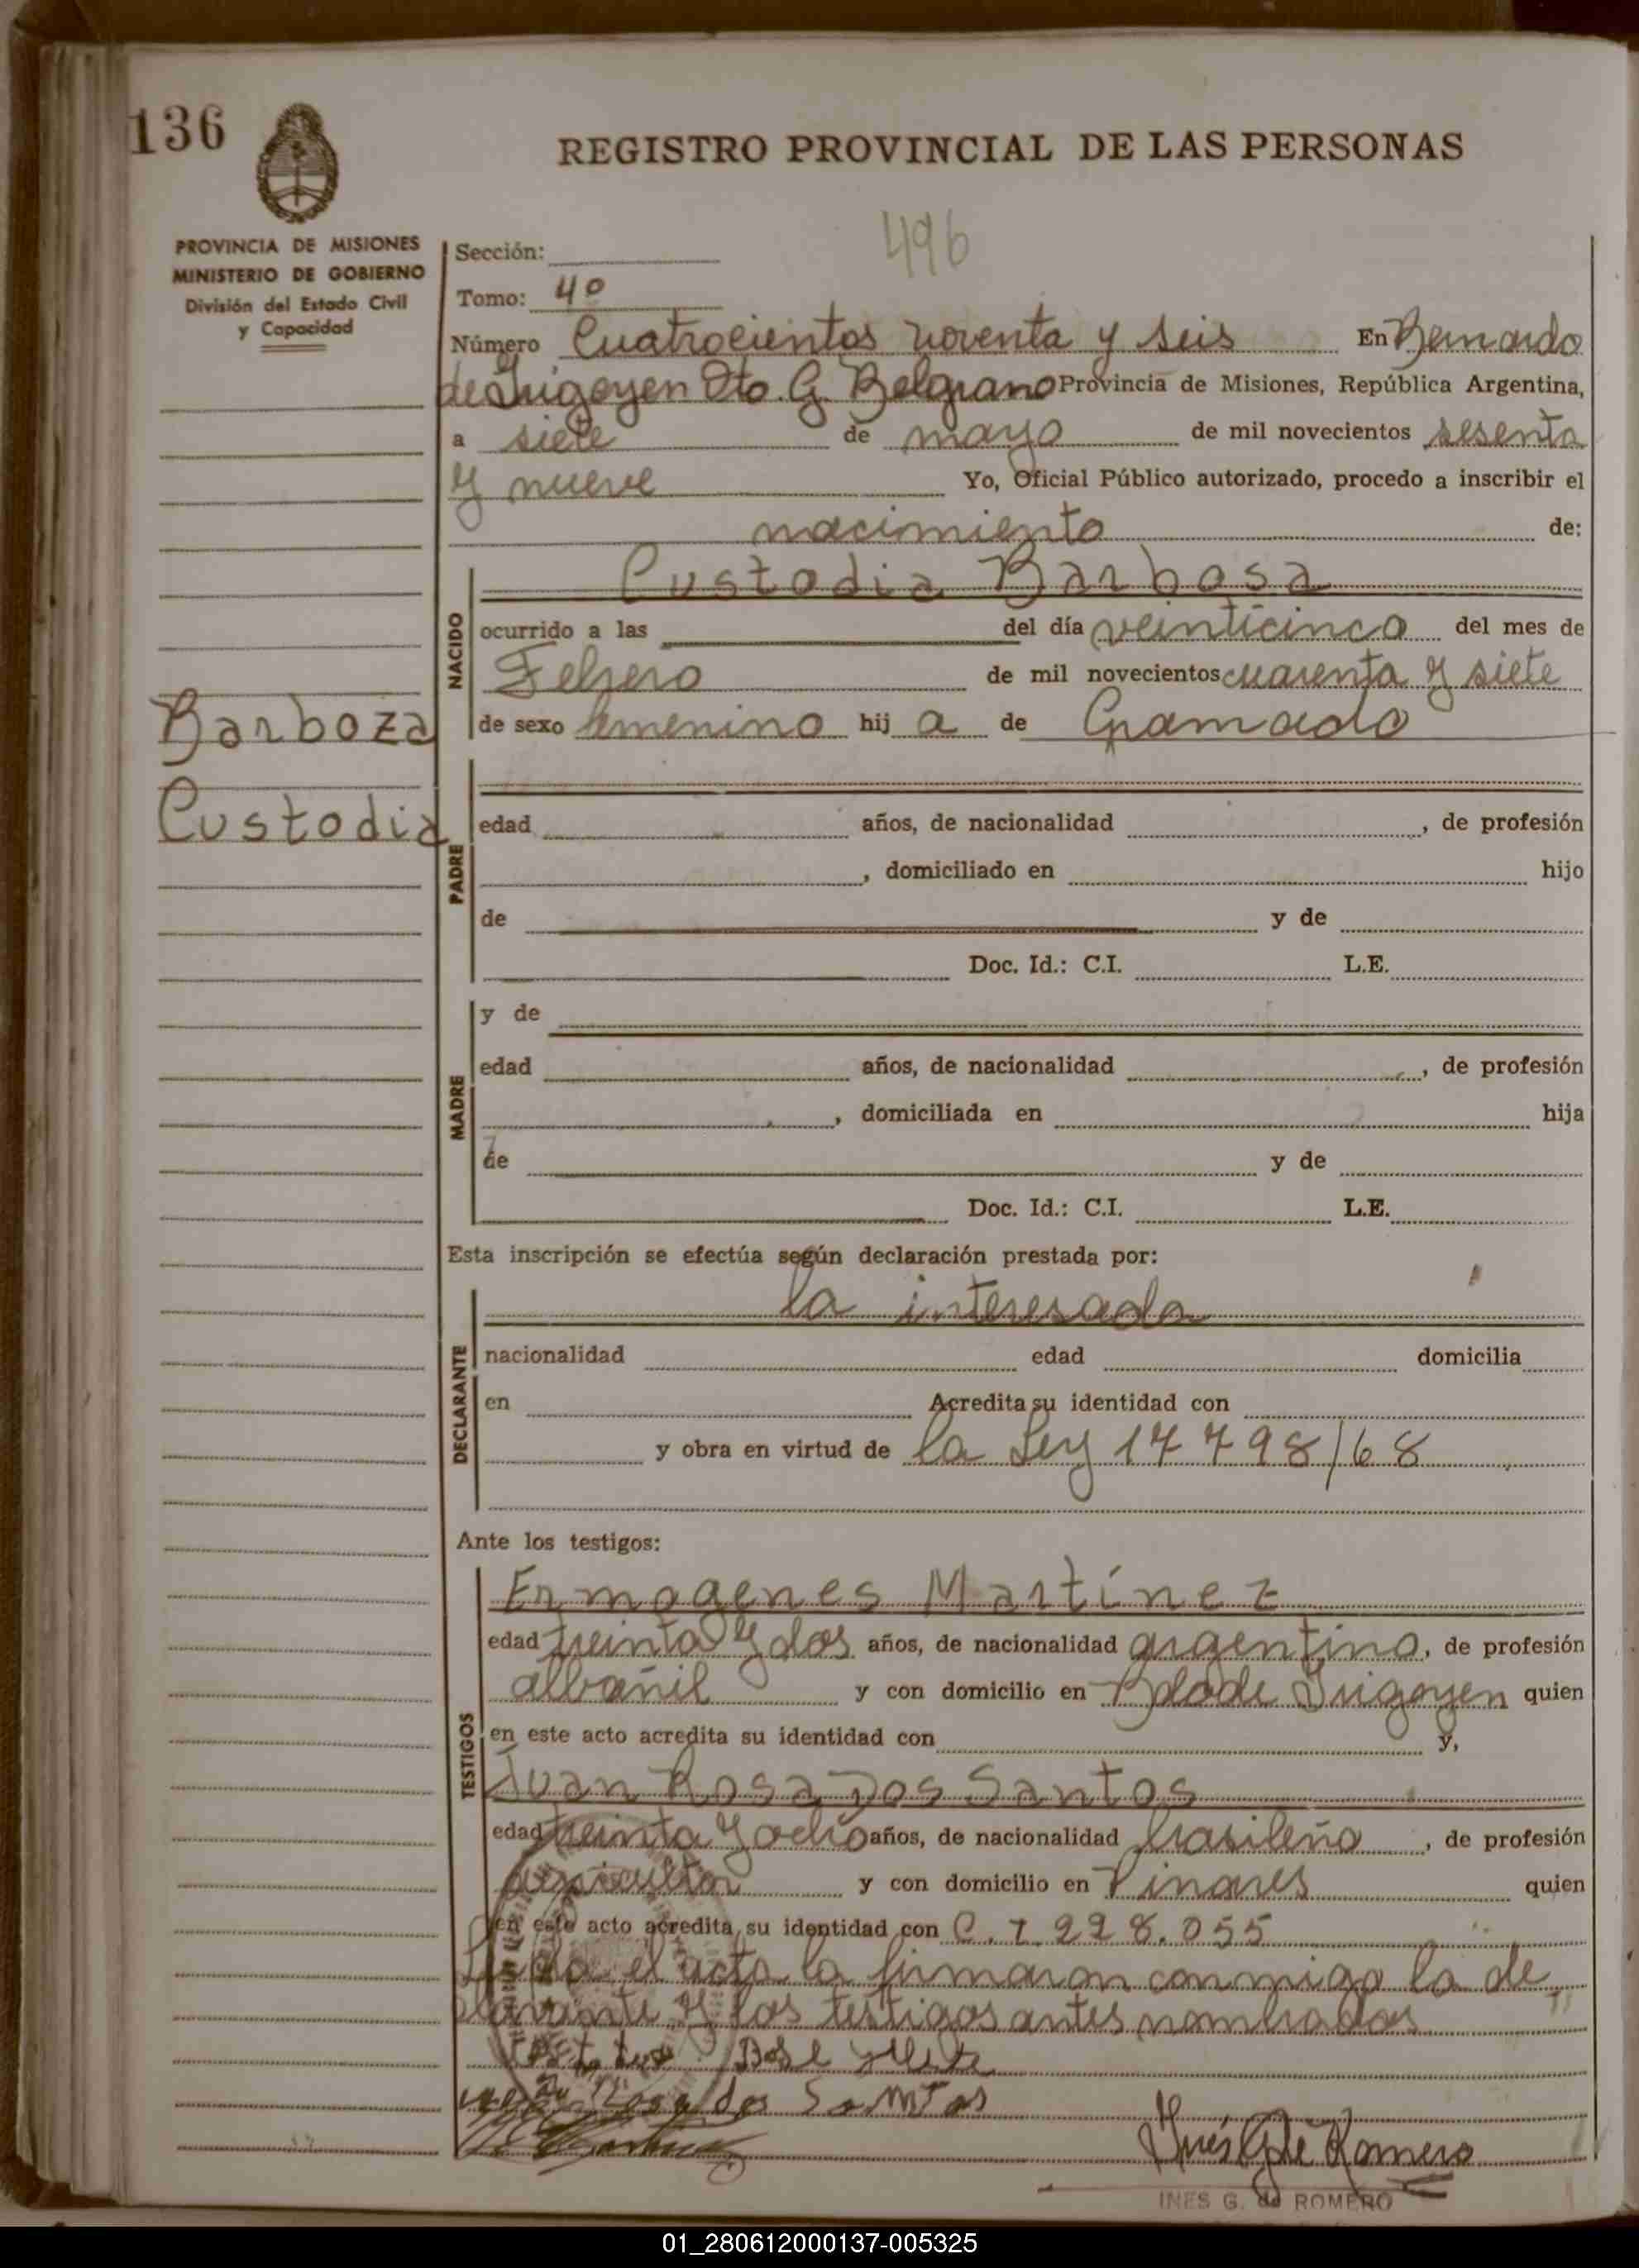 136
REGISTRO PROVINCIAL DE LAS PERSONAS
PROVINCIA DE MISIONES
MINISTERIO DE GOBIERNO
División del Estado Civil
y Capacidad
496
Sección:
Tomo: 40
Número Cuatrocientos noventa y seis En Bernardo
de Irigoyen Dto. G. Belgrano Provincia de Misiones, República Argentina,
a siete de mayo de mil novecientos sesenta
y nueve Yo, Oficial Público autorizado, procedo a inscribir el
nacimiento de:
NACIDO
Custodia Barbosa
ocurrido a las del día veinticinco del mes de
Febrero de mil novecientos cuarenta y siete
de sexo femenino hij a de Gramado
Barboza
Custodia
PADRE
edad años, de nacionalidad , de profesión
, domiciliado en hijo
de y de
Doc. Id.: C.I. L.E.
MADRE
y de
edad años, de nacionalidad , de profesión
, domiciliada en hija
de y de
Doc. Id.: C.I. L.E.
Esta inscripción se efectúa según declaración prestada por:
DECLARANTE
la interesada
nacionalidad edad domicilia
en Acredita su identidad con
y obra en virtud de la Ley 17798/68
Ante los testigos:
TESTIGOS
Ermogenes Martínez
edad treinta y dos años, de nacionalidad argentino, de profesión
albañil y con domicilio en Bdo de Irigoyen quien
en este acto acredita su identidad con y,
Juan Rosa Dos Santos
edad treinta y ocho años, de nacionalidad brasileño, de profesión
agricultor y con domicilio en Pinares quien
en este acto acredita su identidad con C. I 228.055
Leída el acta la firmaron conmigo la de
clarante y los testigos antes nombrados
Rosa dos Santos
Inés G de Romero
INES G. de ROMERO
01_280612000137-005325